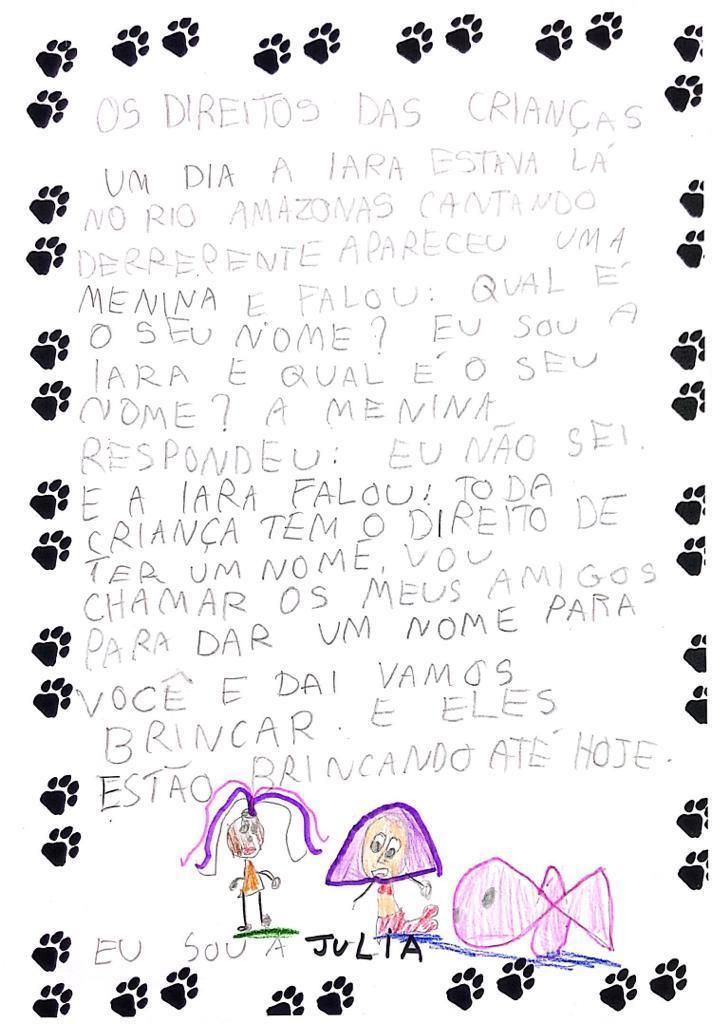 OS DIREITOS DAS CRIANÇAS
UM DIA A IARA ESTAVA LÁ
NO RIO AMAZONAS CANTANDO
DERREPENTE APARECEU UMA
MENINA E FALOU: QUAL É
O SEU NOME? EU SOU A
IARA E QUAL É O SEU
NOME? A MENINA
RESPONDEU: EU NÃO SEI.
E A IARA FALOU: TODA
CRIANÇA TEM O DIREITO DE
TER UM NOME. VOU
CHAMAR OS MEUS AMIGOS
PARA DAR UM NOME PARA
VOCÊ E DAI VAMOS
BRINCAR. E ELES
ESTÃO BRINCANDO ATÉ HOJE.
EU SOU A JULIA